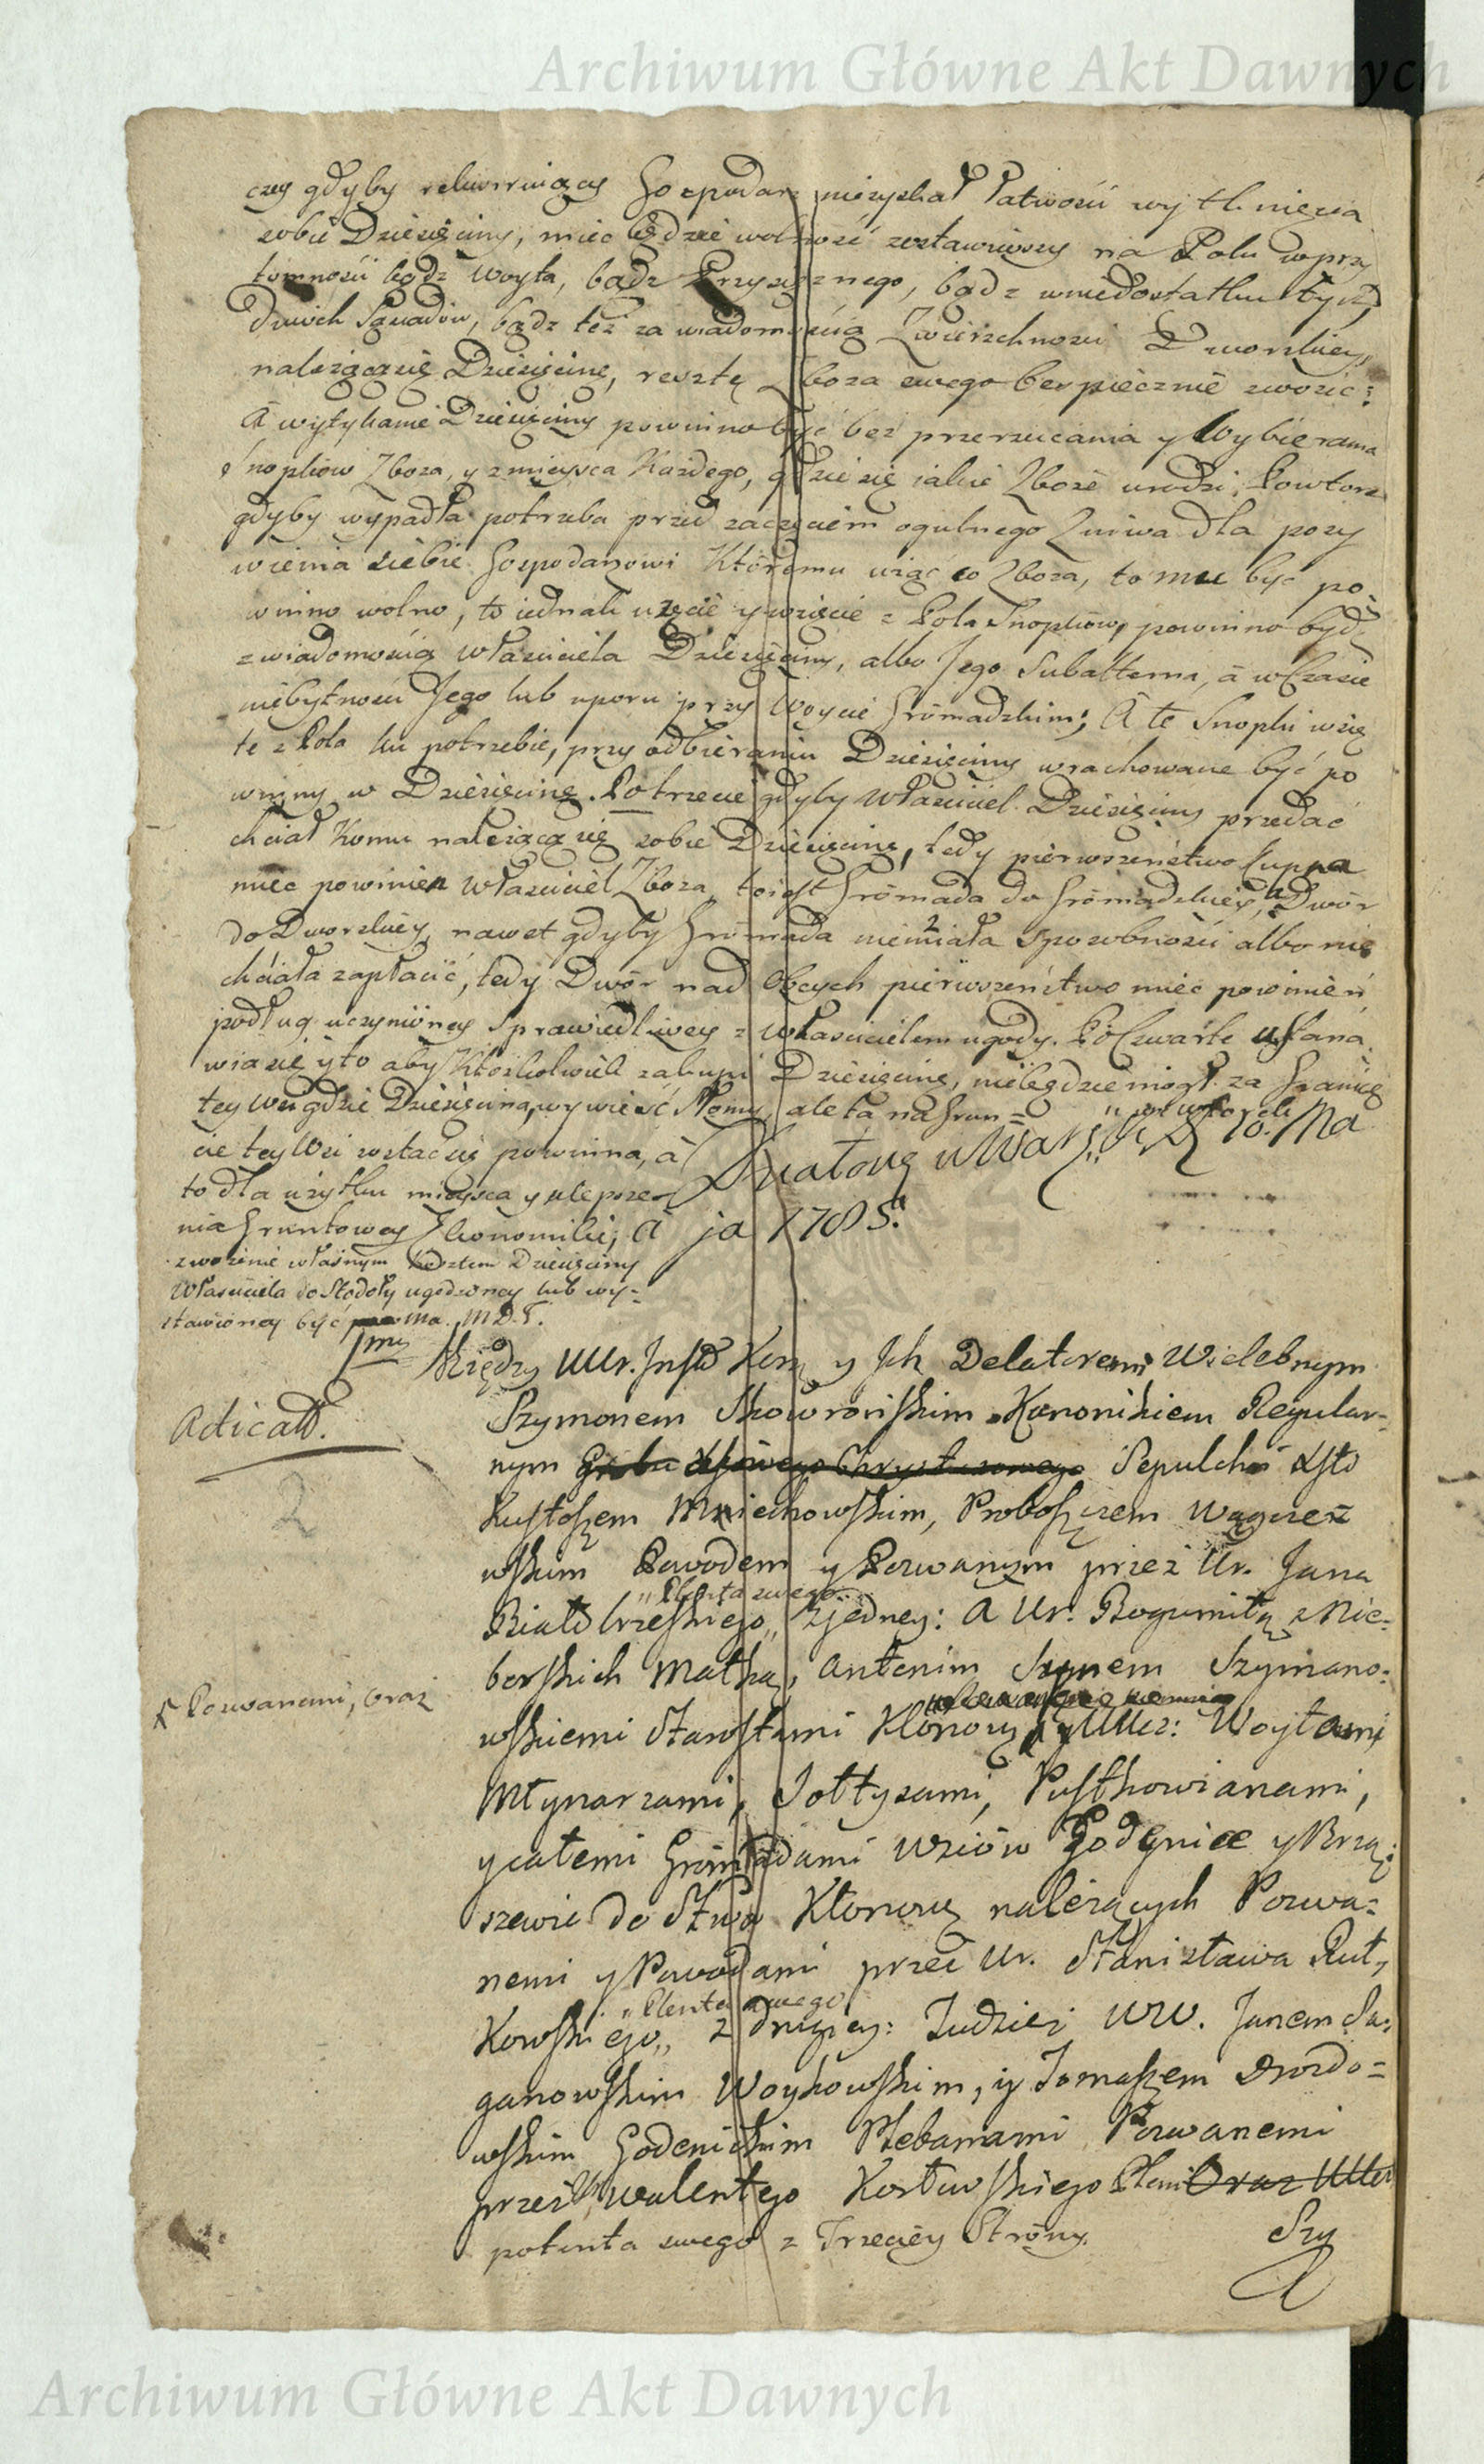 Archiwum Główne Akt Dawnych
czey gdyby rekwiruiący Gospodarz niezyskał łatwości wytknięcia
sobie Dziesięciny, mieć będzie wolność zostawiwszy na Polu wprzy
tomności bądź Woyta, bądź Przysiężnego, bądź w niedostatku tych,
dwóch Sąsiadów, bądź też za wiadomością Zwierzchności Dworskiey,
należącą się Dziesięcinę, resztę Zboża swego bezpiecznie zwozić:
A wytykanie Dziesięciny powinno być bez przerzucania y Wybierania
snopków Zboża, y z mieysca Każdego, gdzie się iakie Zboże urodzi, Powtore
gdyby wypadła potrzeba przed zaczęciem ogulnego Żniwa dla pozy
wienia siebie Gospodarzowi Któremu wziąć co Zboża, to mu być po-
winno wolno, to iednak użęcie y wzięcie z Pola Snopków, powinno bydź
z wiadomością Właściciela Dziesięciny, albo Jego Subalterna, á w Czasie
niebytności Jego lub uporu przy Woycie Gromadzkim; A te Snopki wzię
te z Pola ku potrzebie, przy odbieraniu Dziesięciny wrachowane być po
winny w Dziesięcinę. Potrzecie gdyby Właściciel Dziesięciny przedać
chciał Komu należącą się sobie Dziesięcinę, tedy pierwszeństwo Kupna
mieć powinien Właściciel Zboża, to iest Gromada do Gromadzkiey, á Dwór
do Dworskiey, nawet gdyby Gromada niemiała sposobności albo nie
chciała zapłacić, tedy Dwór nad Obcych pierwszeństwo mieć powinien
podług uczynioney Sprawiedliwey z Właścicielem ugody. Po Czwarte ustana
wia się y to aby Ktożkolwiek zakupi Dziesięcinę, niebędzie mógł za Granicę
tey Wsi gdzie Dziesięcina, wywieść Słomy, ale ta na Grun=
cie tey Wsi zostać się powinna, á
to dla użytku mieysca y ulepsze-
nia Gruntowey Ekonomiki; A
zwożenie własnym kosztem Dziesięciny
Właściciela do Stodoły ugodzoney lub wy=
stawioney być ma. M.D.T.
w Wars: D 10. Ma
ja 1785.
Między UUr. Inst Kor: y Ich Delatorami Wielebnym
Adicatt.
Szymonem Skowrońskim Kanonikiem Regular-
nym Grobu Chrystusowego Sepulchri Xsti
2
Kustoszem Miechowskim, Proboszczem Wągcze
wskim Powodem y Pozwanym przez Ur. Jana
„Plenta swego
Białobrzeskiego„ z jedney: A Ur: Bogumiłą z Nie=
berskich Matką, Antonim Synem Szymano=
Pozwanemi, oraz
wskiemi Starostami Klonowy y UUcz: Woytami
Młynarzami, Sołtysami, Pustkowianami,
y całemi Gromadami Wsiów Godynice y Brzą=
szewic do Stwa Klonowy należących Pozwa=
nemi y Powodami przez Ur. Stanisława Rut,
„Plenta swego
Kowskiego„ z drugiey: Tudzież WW. Janem Sa=
ganowskim Woykowskim, y Tomaszem Drozdo=
wskim Godenickim Plebanami Pozwanemi
przez Ur Walentego Kozłowskiego Pleni Oraz UUcz
potenta swego z Trzeciey Strony.
Szy
Archiwum Główne Akt Dawnych